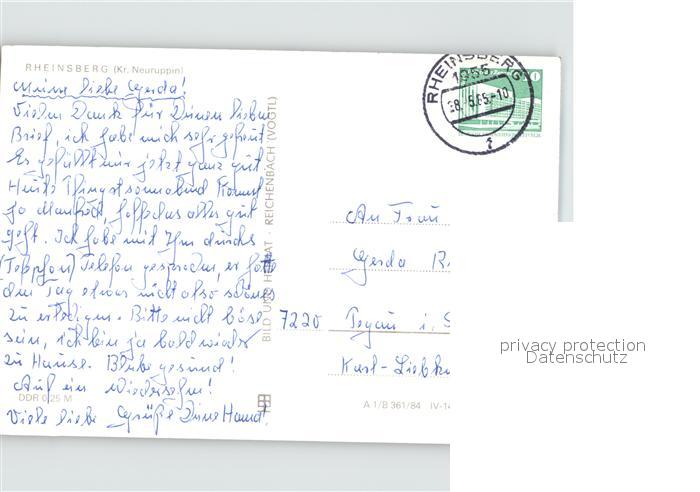 RHEINSBERG (Kr. Neuruppin)
Meine liebe Gerda!
Vielen Dank für Deinen lieben
Brief, ich habe mich sehr gefreut
Es gefällt mir jetzt ganz gut
Heute Pfingstsonnabend kommt
ja Manfred, hoffe das alles gut
geht. Ich habe mit Ihm durchs
Telefon gesprochen, er hatte
den Tag etwas nicht also schönes
zu erledigen. Bitte nicht böse
sein, ich bin ja bald wieder
zu Hause. Bleibe gesund!
Auf ein Wiedersehn!
DDR 0,25 M
Viele liebe Grüße Deine
BILD UND HEIMAT REICHENBACH (VOGTL)
A 1/B 361/84 IV-14
RHEINSBERG
1955
-10
An Frau
Gerda
7220 Pegau i.
Karl-Liebkn
privacy protection
Datenschutz